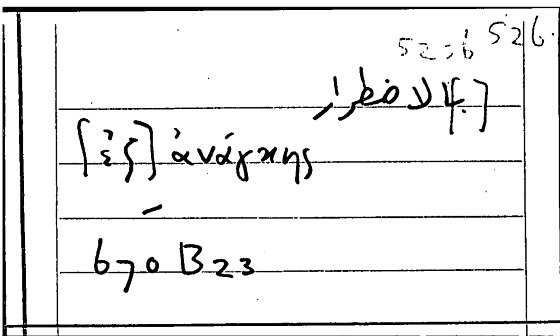 52,6 526.
[ب]الاضطرار
[ἐξ] ἀνάγκης
—
670 B 23